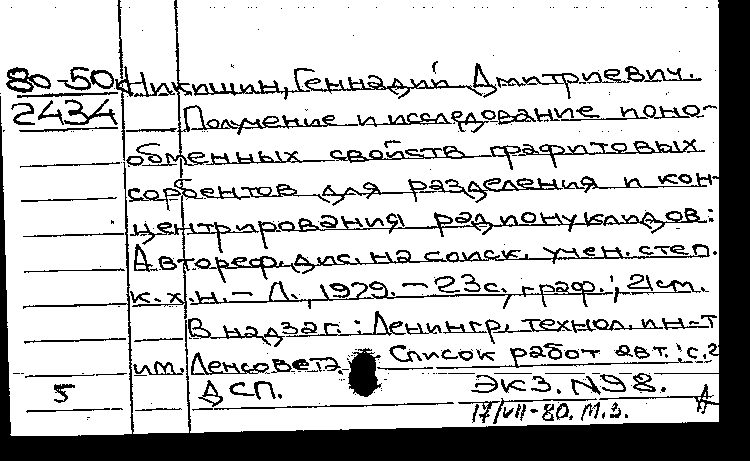 80-50к Никишин, Геннадий Дмитриевич.
2434 Получение и исследование ионо-
обменных свойств графитовых
сорбентов для разделения и кон-
центрирования радионуклидов:
Автореф. дис. на соиск. учен. степ.
к.х.н. – Л., 1979. – 23с, граф.; 21см.
В надзаг.: Ленингр. технол. ин-т
им. Ленсовета. Список работ авт.: с. 2
5 ДСП. Экз. N98.
17/VII-80. М.З.